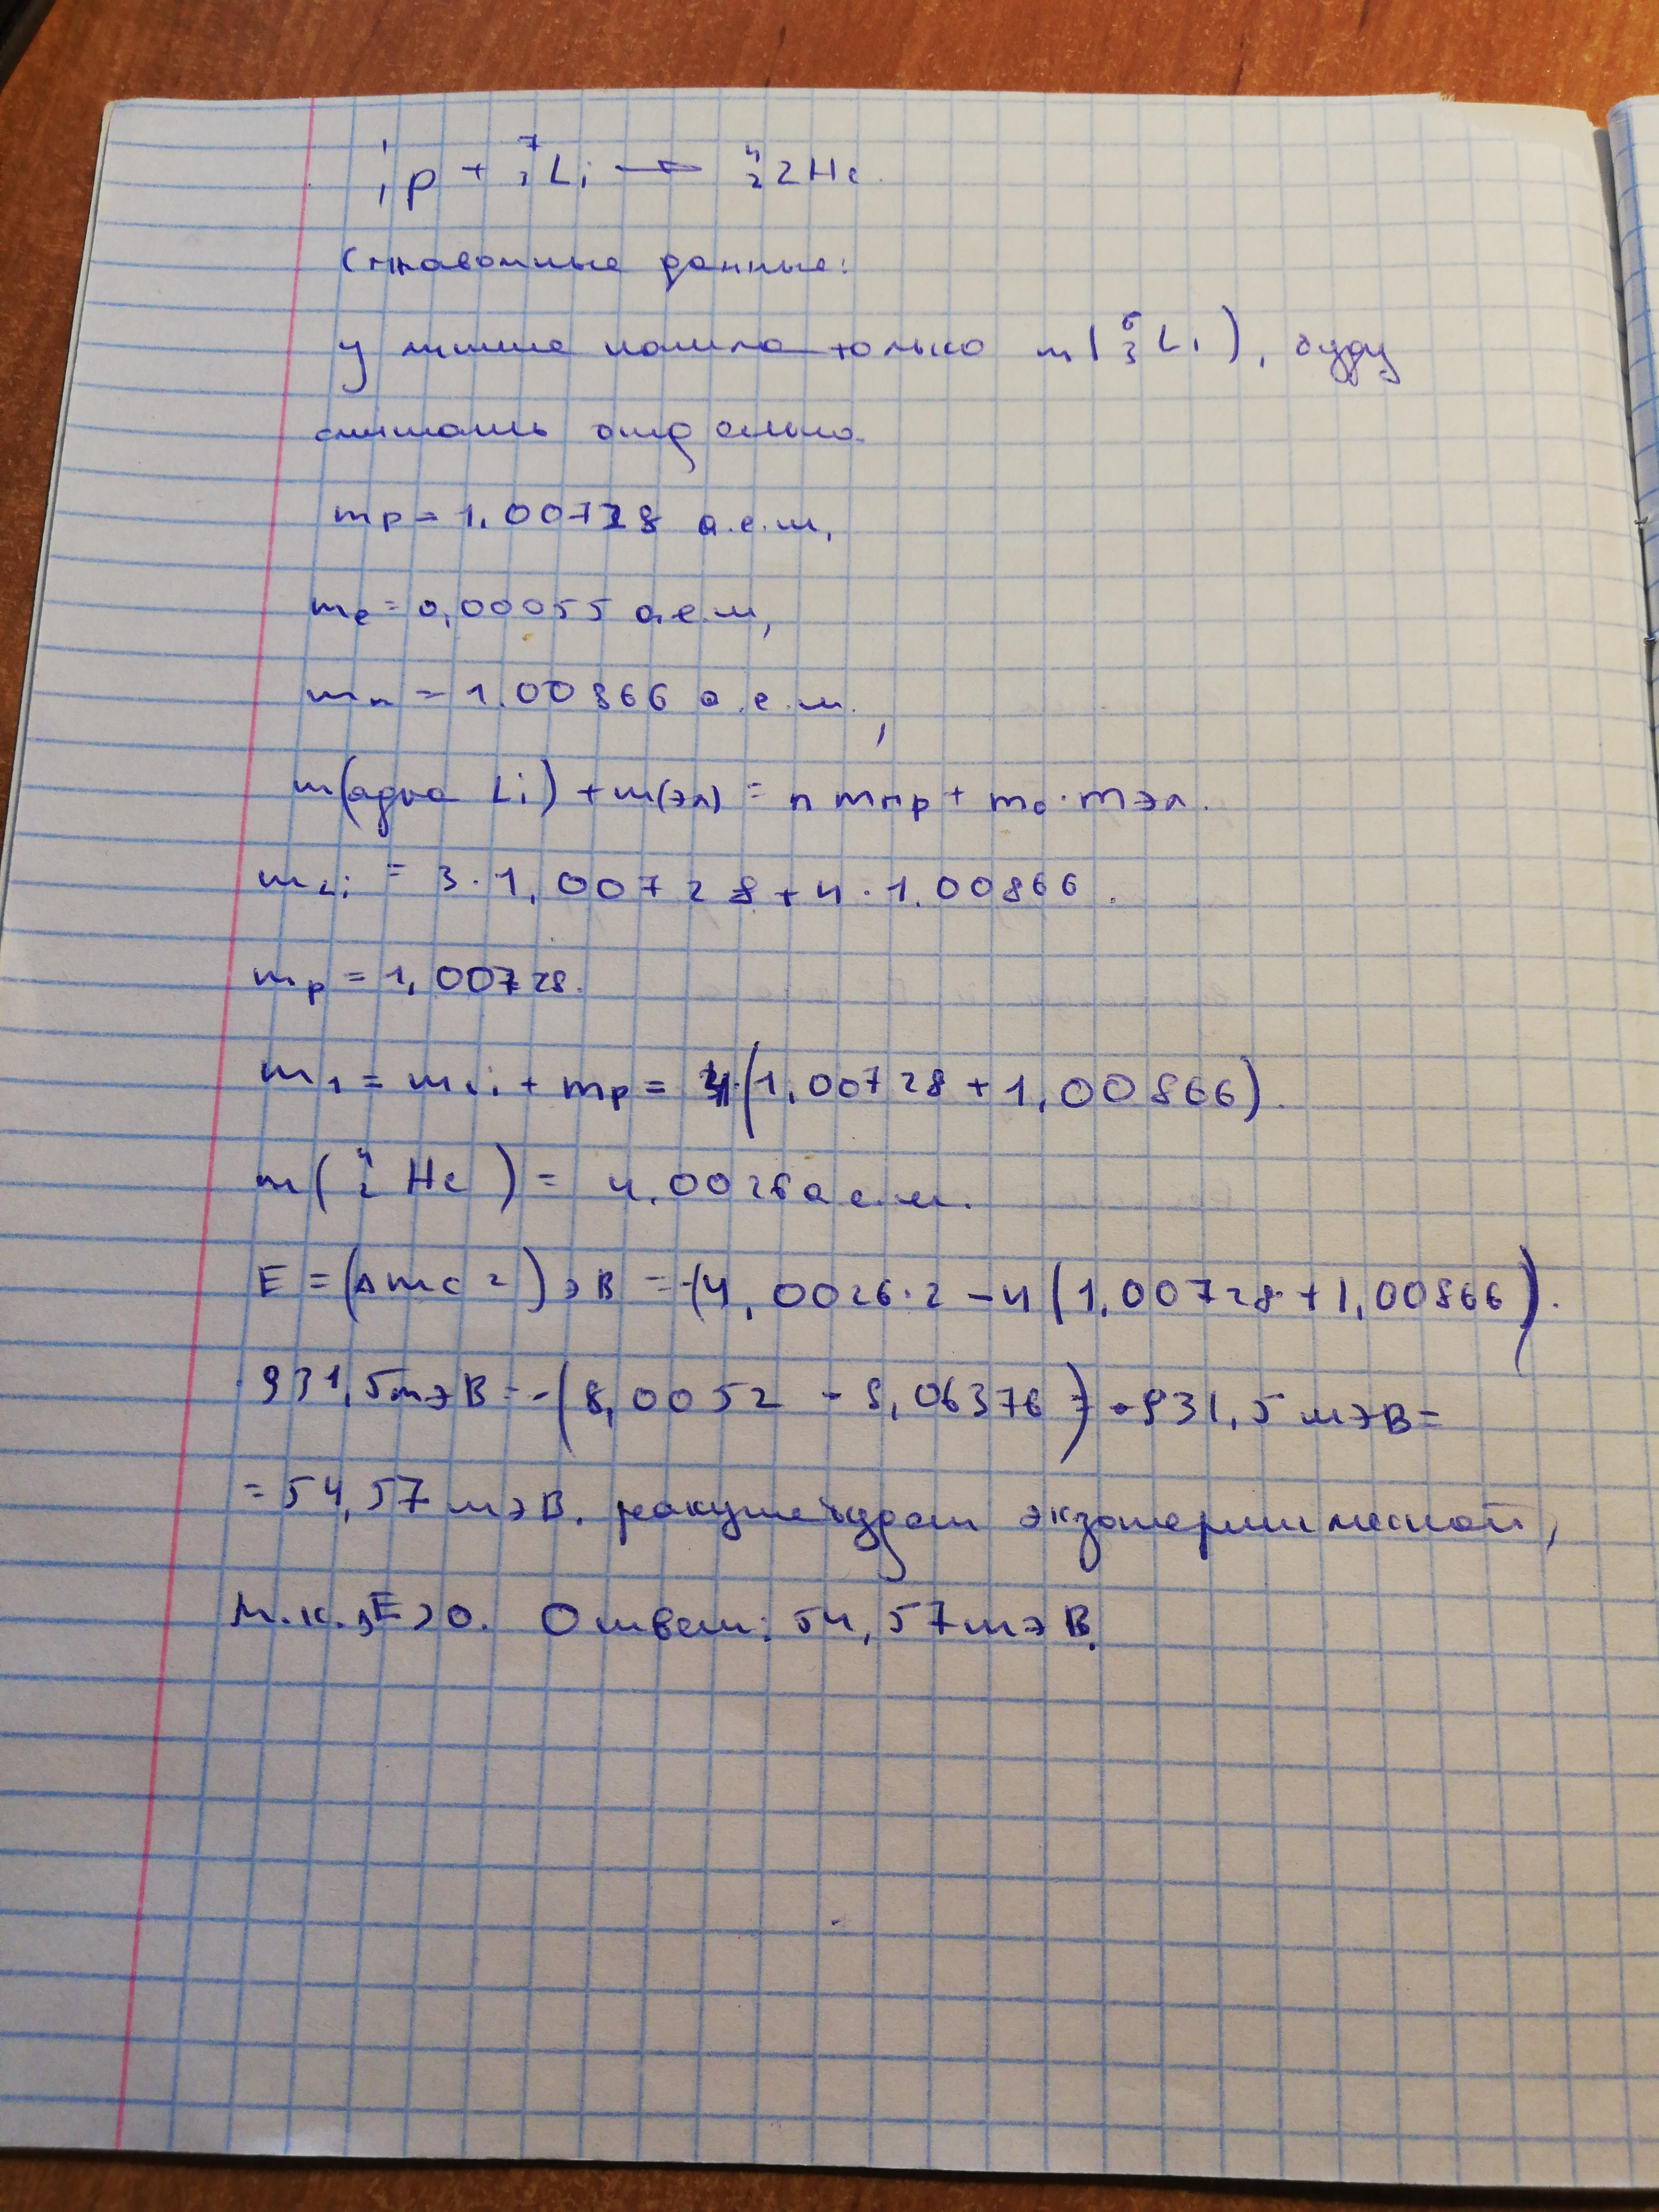 ¹₁p + ⁷₃Li → ⁴₂2He.
Справочные данные:
у меня нашла только m(⁶₃Li), буду
считать отдельно.
mp = 1,00728 а.е.м,
me = 0,00055 а.е.м,
mn = 1.00866 а.е.м.,
m(ядра Li) + m(эл) = n mпр + m₀·mэл.
mLi = 3·1,00728 + 4·1.00866.
mp = 1,00728.
m1 = mLi + mp = 4·(1,00728 + 1,00866).
m(⁴₂He) = 4.0026 а.е.м.
E = (Δmc²) эВ = -(4,0026·2 - 4(1,00728 + 1,00866)).
·931,5мэВ = -(8,0052 - 8,06376)·931,5 мэВ =
= 54,57 мэВ. реакция будет экзотермической,
т.к. E>0. Ответ: 54,57 мэВ.